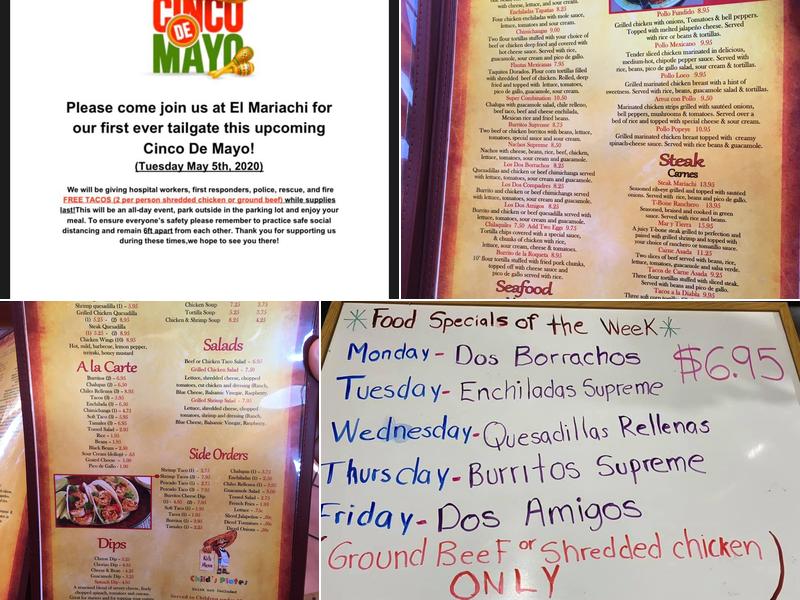 CINCO
DE
MAYO
Please come join us at El Mariachi for
our first ever tailgate this upcoming
Cinco De Mayo!
(Tuesday May 5th, 2020)
We will be giving hospital workers, first responders, police, rescue, and fire
FREE TACOS (2 per person shredded chicken or ground beef) while supplies
last!This will be an all-day event, park outside in the parking lot and enjoy your
meal. To ensure everyone's safety please remember to practice safe social
distancing and remain 6ft apart from each other. Thank you for supporting us
during these times,we hope to see you there!
with cheese, lettuce, and sour cream.
Enchiladas Tapatias 8.25
Four chicken enchiladas with mole sauce,
lettuce, tomatoes, and sour cream.
Chimichangas 9.00
Two flour tortillas stuffed with your choice of
beef or chicken deep fried and covered with
hot cheese sauce. Served with rice,
guacamole, sour cream and pico de gallo.
Flautas Mexicanas 7.95
Taquitos Dorados. Flour corn tortillas filled
with shredded beef or chicken. Rolled, deep
fried and topped with lettuce, tomatoes,
pico de gallo, guacamole, sour cream.
Super Combination 10.50
Chalupa with guacamole, chile relleno,
beef taco, beef and cheese enchilada,
Mexican rice and fried beans.
Burritos Supreme 8.75
Two beef or chicken burritos with beans, lettuce,
tomatoes, sour cream and guacamole.
Nachos Supreme 8.50
Nachos with cheese, beans, rice, beef, chicken,
lettuce, tomatoes, sour cream and guacamole.
Los Dos Borrachos
Quesadillas and chicken or beef chimichanga served
with lettuce and guacamole.
Los Dos Compadres 8.25
Burrito and chicken or beef chimichanga served
with lettuce and guacamole.
Los Dos Amigos 8.25
Burrito and chicken or beef quesadilla served with
lettuce, tomatoes, sour cream and guacamole.
Chilaquiles 7.50 Add Two Eggs 9.75
Tortilla chips covered with a special sauce,
& chunks of chicken with rice,
lettuce, tomatoes, sour cream & guacamole.
Burrito de la Roqueta 8.95
10" flour tortilla stuffed with fried pork chunks,
topped off with cheese sauce and
pico de gallo served with rice.
Seafood
Pollo Fundido 8.95
Grilled chicken with onions, Tomatoes & bell peppers.
Topped with melted jalapeño cheese. Served
with rice or beans & tortillas.
Pollo Mexicano 9.95
Tender sliced chicken marinated in delicious,
medium-hot, chipotle pepper sauce. Served with
rice, beans, pico de gallo salad, sour cream & tortillas.
Pollo Loco 9.95
Grilled marinated chicken breast with a hint of
sweetness. Served with rice, beans, guacamole salad & tortillas.
Arroz con Pollo 9.50
Marinated chicken strips grilled with sautéed onions,
bell peppers, mushrooms & tomatoes. Served over a
bed of rice and topped with special cheese & sour cream.
Pollo Popeye 10.95
Grilled marinated chicken breast topped with creamy
spinach-cheese sauce. Served with rice beans & guacamole.
Steak
Carnes
Steak Mariachi 13.95
Seasoned rib-eye grilled and topped with sautéed
onions. Served with rice, beans and tortillas.
T-Bone Ranchero 13.95
Seasoned, braised and cooked in green
sauce. Served with rice and beans.
Mar y Tierra 15.95
A juicy T-bone steak grilled to perfection and
paired with grilled shrimp and topped with
your choice of ranchero or tomatillo sauce.
Carne Asada 11.25
Two slices of beef served with beans, rice,
lettuce, tomatoes, guacamole and salsa verde.
Tacos de Carne Asada 9.25
Three flour tortillas stuffed with sliced steak.
Served with beans and pico de gallo.
Tacos a la Diabla 9.95
Shrimp quesadilla (1) - 5.95
Grilled Chicken Quesadilla
(1) 5.25 - (2) 8.95
Steak Quesadilla
(1) 5.25 - (2) 8.95
Chicken Wings (10) 8.95
Hot, mild, barbecue, lemon pepper,
teriyaki, honey mustard
A la Carte
Burritos (2) - 6.95
Chalupas (2) - 6.50
Chiles Rellenos (2) - 8.95
Tacos (3) - 5.95
Enchilada (3) - 6.50
Chimichanga (1) - 4.75
Soft Taco (3) - 5.95
Tamales (3) - 6.95
Tossed Salad - 2.95
Rice - 1.95
Beans - 1.95
Black Beans - 2.50
Pico de Gallo - 1.90
Dips
Chorizo Dip - 4.95
Cheese & Bean - 4.25
Guacamole Dip - 3.25
Spinach Dip - 4.95
Chicken Soup 7.25 3.75
Tortilla Soup 5.25 3.75
Chicken & Shrimp Soup 8.25 4.25
Salads
Beef or Chicken Taco Salad - 6.95
Grilled Chicken Salad - 7.50
Lettuce, shredded cheese, chopped
tomatoes, cut chicken and dressing (Ranch,
Blue Cheese, Balsamic Vinegar, Raspberry)
Grilled Shrimp Salad - 7.95
Lettuce, shredded cheese, chopped
tomatoes, shrimp and dressing (Ranch,
Blue Cheese, Balsamic Vinegar, Raspberry)
Side Orders
Shrimp Taco (1) - 2.75
Shrimp Taco (3) - 7.95
Pescado Taco (1) - 2.75
Pescado Taco (3) - 7.95
Burritos Cheese Dip
(1) - 4.50 (2) - 7.95
Soft Taco (1) - 1.95
Tacos (1) - 1.95
Burritos (1) - 3.95
Tamales (1) - 2.25
Chalupas (1) - 3.75
Enchiladas (1) - 2.50
Guacamole Salad - 3.00
Tossed Salad - 2.75
French Fries - 1.95
Kid's
Menu
Child's Plates
Food Specials of the Week
Monday - Dos Borrachos $6.95
Tuesday - Enchiladas Supreme
Wednesday - Quesadillas Rellenas
Thursday - Burritos Supreme
Friday - Dos Amigos
(Ground Beef or Shredded chicken)
ONLY